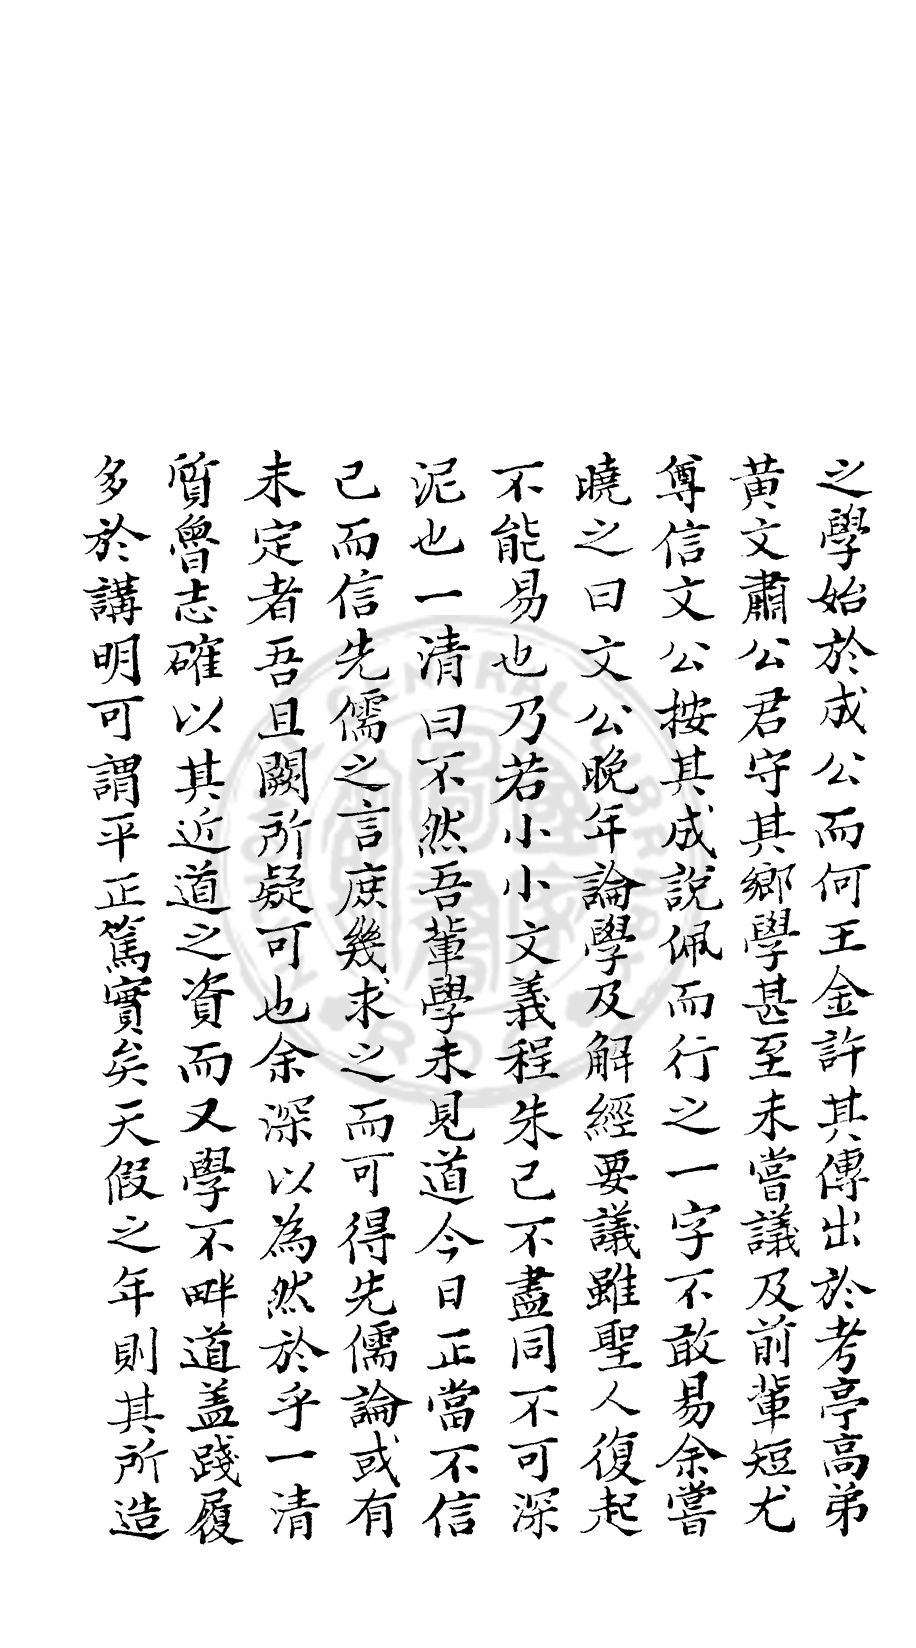 之學始於成公而何王金許其傳出於考亭高弟
黄文肅公君守其鄉學甚至未嘗議及前輩短尤
尊信文公按其成說佩而行之一字不敢易余嘗
曉之曰文公晚年論學及解經要議雖聖人復起
不能易也乃若小小文義程朱已不盡同不可深
泥也一清曰不然吾輩學未見道今日正當不信
己而信先儒之言庶幾求之而可得先儒論或有
未定者吾且闕所疑可也余深以為然於乎一清
質魯志確以其近道之資而又學不畔道盖踐履
多於講明可謂平正篤實矣天假之年則其所造